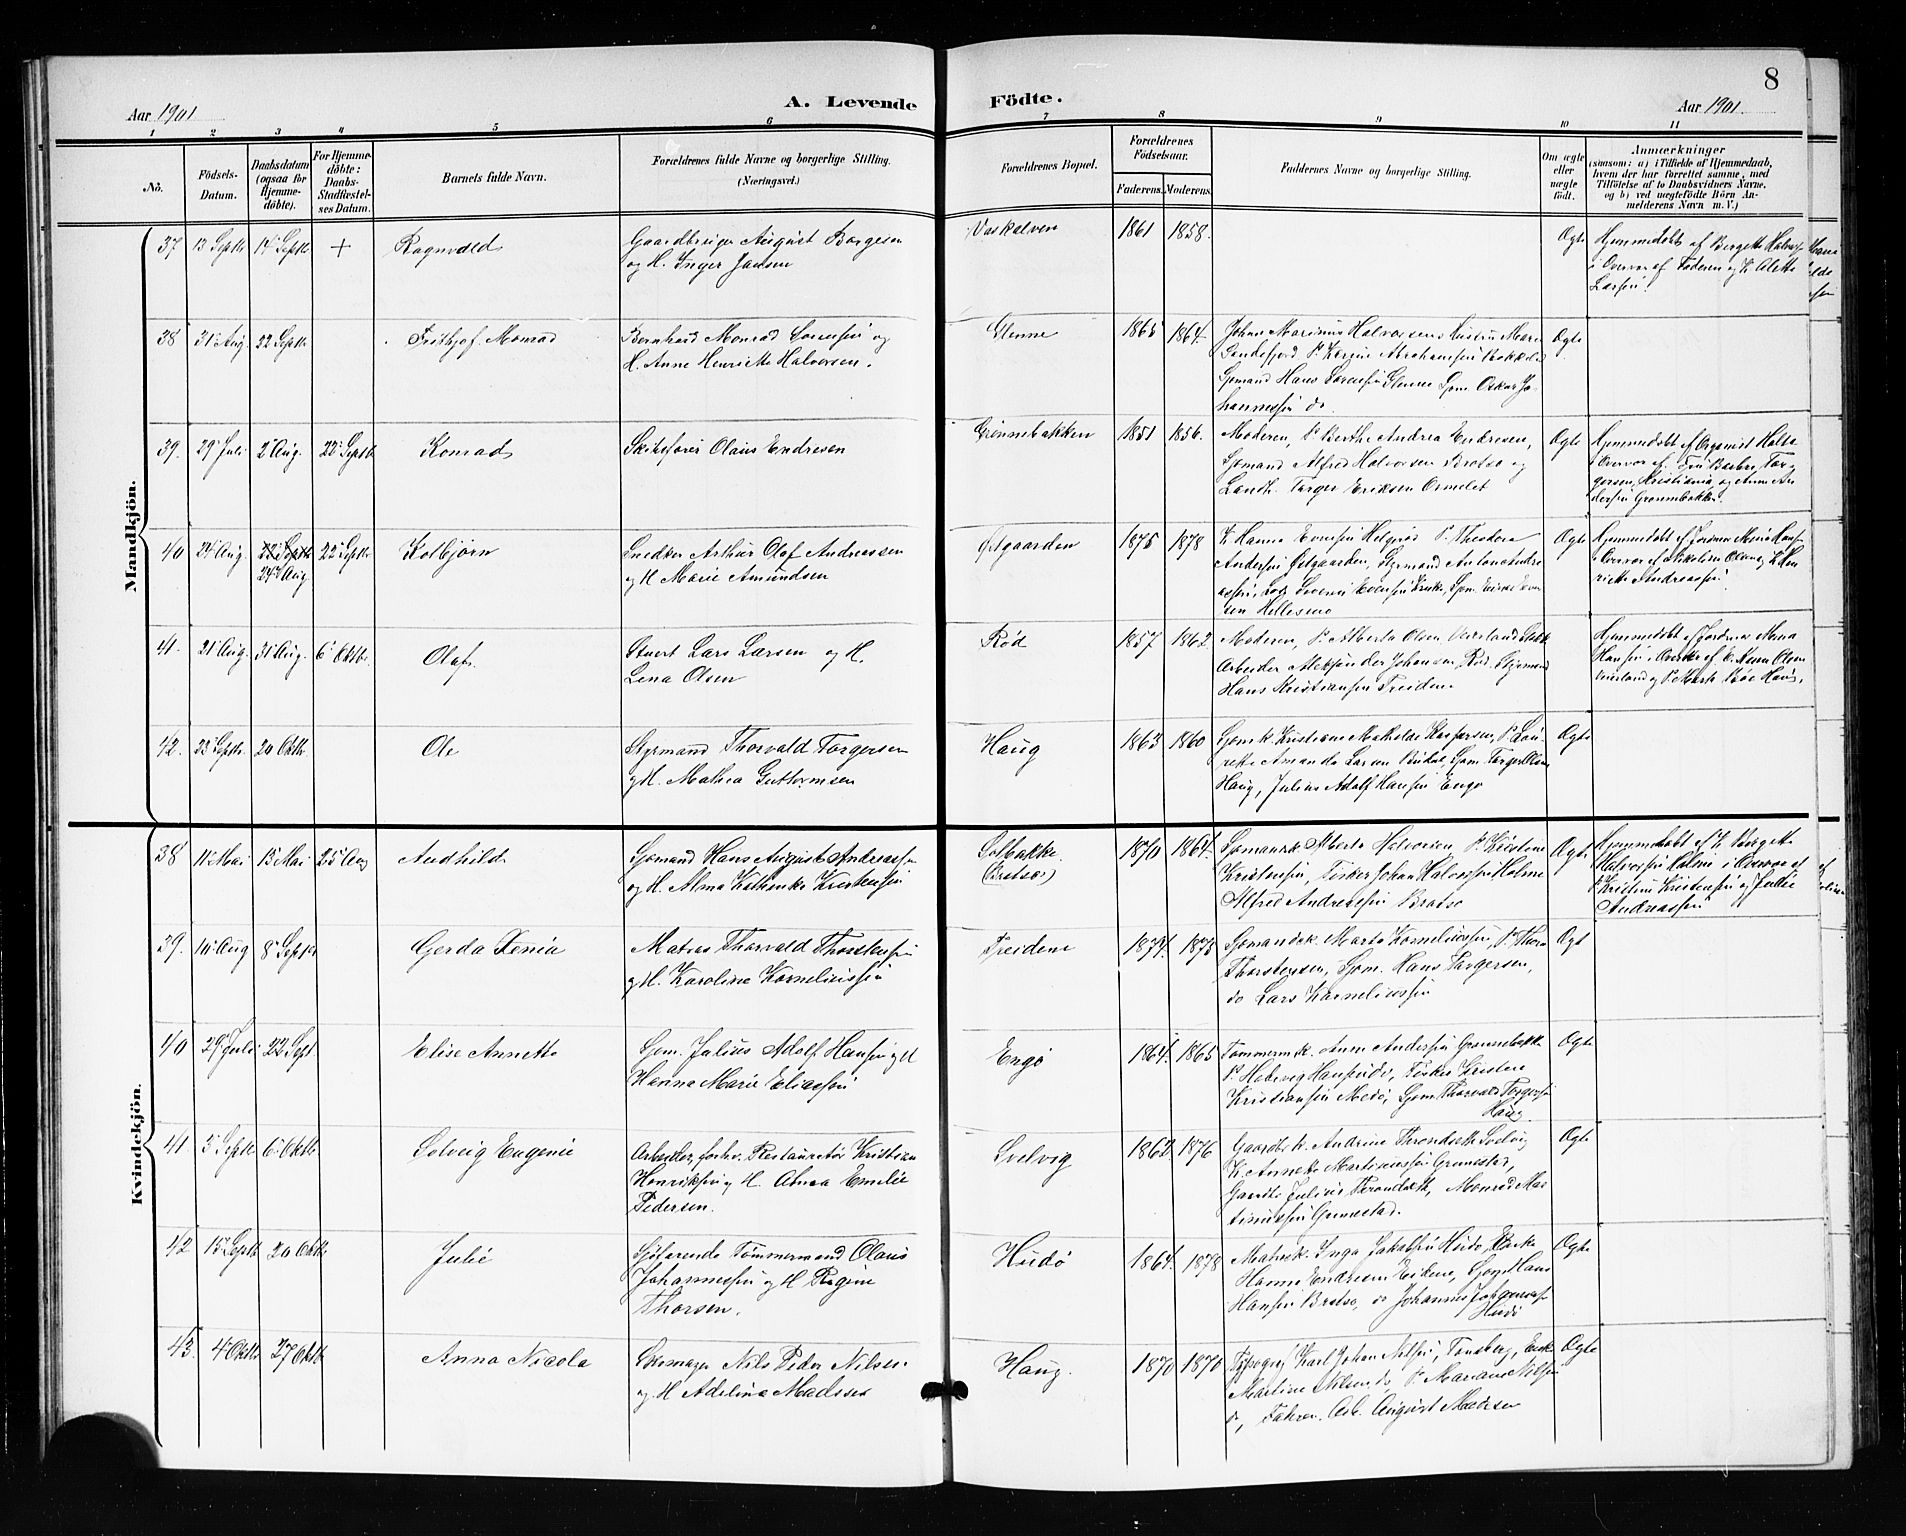 8
Aar 1901
A. Levende
Födte.
Aar 1901.
1 2 3 4 5 6 7 8 9 10 11
No.
Födsels-
Datum.
Daabsdatum
(ogsaa for
Hjemme-
döbte).
For Hjemme-
döbte:
Daabs-
Stadfæstel-
ses Datum.
Barnets fulde Navn.
Forældrenes fulde Navne og borgerlige Stilling.
(Næringsvei.)
Forældrenes Bopæl.
Forældrenes
Födselsaar.
Faderens. Moderens.
Faddernes Navne og borgerlige Stilling.
Om ægte
eller
uægte
født.
Anmærkninger
(saasom: a) i Tilfælde af Hjemmedaab,
hvem der har forrettet samme, med
Tilföielse af to Daabsvidners Navne,
og b) ved uægtefödte Börn An-
melderens Navn m. V.)
Mandkjön.
37 13 Septb 14 Septb + Ragnvald
Gaardbruger August Borgesen
og H. Inger Jansen
1861 1858.
Ogte
Hjemmedøbt af Bergette Halvorsen
i Overvær af Faderen og K. Alette
Larsen.
38 31 Aug 22 Septb Frithjof Monrad
Bernhard Monrad Sørensen og
H. Anne Henriette Halvorsen.
Glenne 1865 1864.
Johan Marinus Halvorsens Hustru Marie
Sandefjord P. Karine Abrahamsen
Sjømand Hans Sørensen Glenne Sjøm. Oskar Jo-
hannessen do.
Ogte
39. 29 Juli 2 Aug. 22 Septb Konrad
Skibsfører Olaus Endresen
Grønnebakken 1851 1856.
Moderen, P. Berthe Andrea Endresen,
Sjømand Alfred Halvorsen Brøtsø og
Landh. Torger Eriksen Ormelet
Ogte
Hjemmedøbt af Organist Holte
i Overvær af Fru Barbra Tor-
gersen, Kristiania, og Anne An-
dersen Grønnebakken.
40 24 Aug. 22 Septb
24 Aug 22 Septb Kolbjørn
Snedker Arthur Olaf Andreassen
og H Marie Amundsen
Østgaarden 1875 1878
K Hanna Evensen P. Theodora
Andersen Østgaarden, Styrmand Anton Andre-
assen
sen Hellesmo
Ogte
Hjemmedøbt af Jordmor Mina Hansen
i Overvær af Nikoline Olsen og K. Hen-
riette Andreassen
41. 21 Aug. 31 Aug. 6 Oktbr Olaf
Stuert Lars Larsen og H.
Lena Olsen
Rød 1857 1862
Moderen, P. Alberta Olsen Veierland
Arbeider Aleksander Johansen, Rød, Styrmand
Hans Kristiansen Treidene
Ogte
Hjemmedøbt af Jordmor Mina
Hansen i Overvær af E. Anna Olsen
Veierland og P. Marth
42. 23 Septb. 20 Oktb Ole
Styrmand Thorvald Torgersen
og H. Mathea Guttormsen
Haug 1863 1860
Sjømk. Kristiane Mathilde Kaspersen, P. Lau-
rette Amanda Larsen Sjøm. Torger Olsen
Haug, Julius Adolf Hansen Engø
Ogte
Kvindekjön.
38 11 Mai 15 Mai 25 Aug Audhild
Sjømand Hans August Andreassen
og H. Alma Kathinka Kristensen
Solbakke
(Brøtsø) 1870 1864.
Sjømansk. Alberta Halvorsen, P. Kristine
Kristensen, Fisker Johan Halvorsen Holme
Alfred Andreassen Brøtsø
Ogte
Hjemmedøbt af K Bergette
Halvorsen Holme i Overvær af
P. Kristine Kristensen og Julie
Andreassen
39. 10 Aug 8 Septbr Gerda Xenia
Matros Thorvald Thorstensen
og H. Karoline Korneliussen
Treidene 1874. 1873
Sjømandsk. Marta Korneliussen, P. Thora
Thorstensen, Sjøm. Hans Torgersen,
do Lars Korneliussen
Ogt
40 29 Juli 22 Sept Elise Annette
Sjøm. Julius Adolf Hansen og H
Hanna Marie Eliassen
Engø 1864. 1865
Tømmermk. Anne Andersen Grønnebakke
P. Hansen do, Fisker Kristen
Kristiansen Medø, Sjøm. Thorvald Torgersen
Haug
Ogte
41 3 Septb 6 Oktb Solveig Eugenie
Arbeider, forhv. Restauratør Kristian
Henriksen og H. Anna Emilie
Pedersen.
Svelvig 1862 1876
Gaardbk. Andrine Throndsæth Svelvig
K. Annette Martinussen Grimestad,
Gaardb Julius Throndsæth, Monrad Mar-
tinussen Grimestad.
Ogte
42 15 Septb 20 Oktb. Julie
Sjøfarende Tømmermand Olaus
Johannessen og H Regine
Thorsen.
Husø 1864. 1878
Matrosk. Inga Jakobsen Husø, Enke
Hanne Endresen, Sjøm. Hans
Hansen Brøtsø, do Johannes
Husø
Ogte
43. 4 Oktb 27 Oktb Anna Nicola
Skomager Nils Peder Nilsen
og H Adelina Madsen
Haug. 1870 1870
Typograf Karl Johan Nilsen, Tønsberg, Enke
Martine Nilsen do, P. Mariane Nilsen
do, Faderen, Arb. August Madsen
Ogte